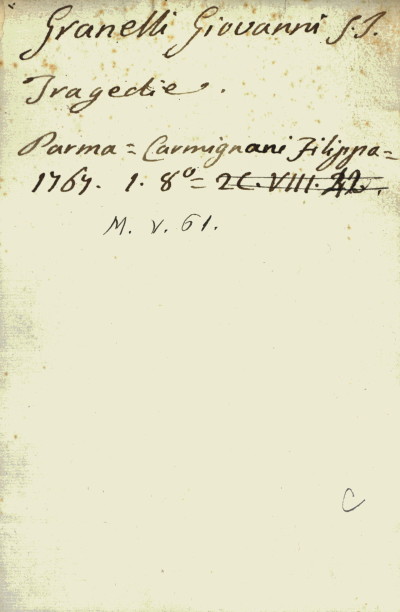 Granelli Giovanni S.J.
Tragedie.
Parma = Carmignani Filippo =
1767. 1. 8º = 2C. VIII. 22.
M. V. 61.
C